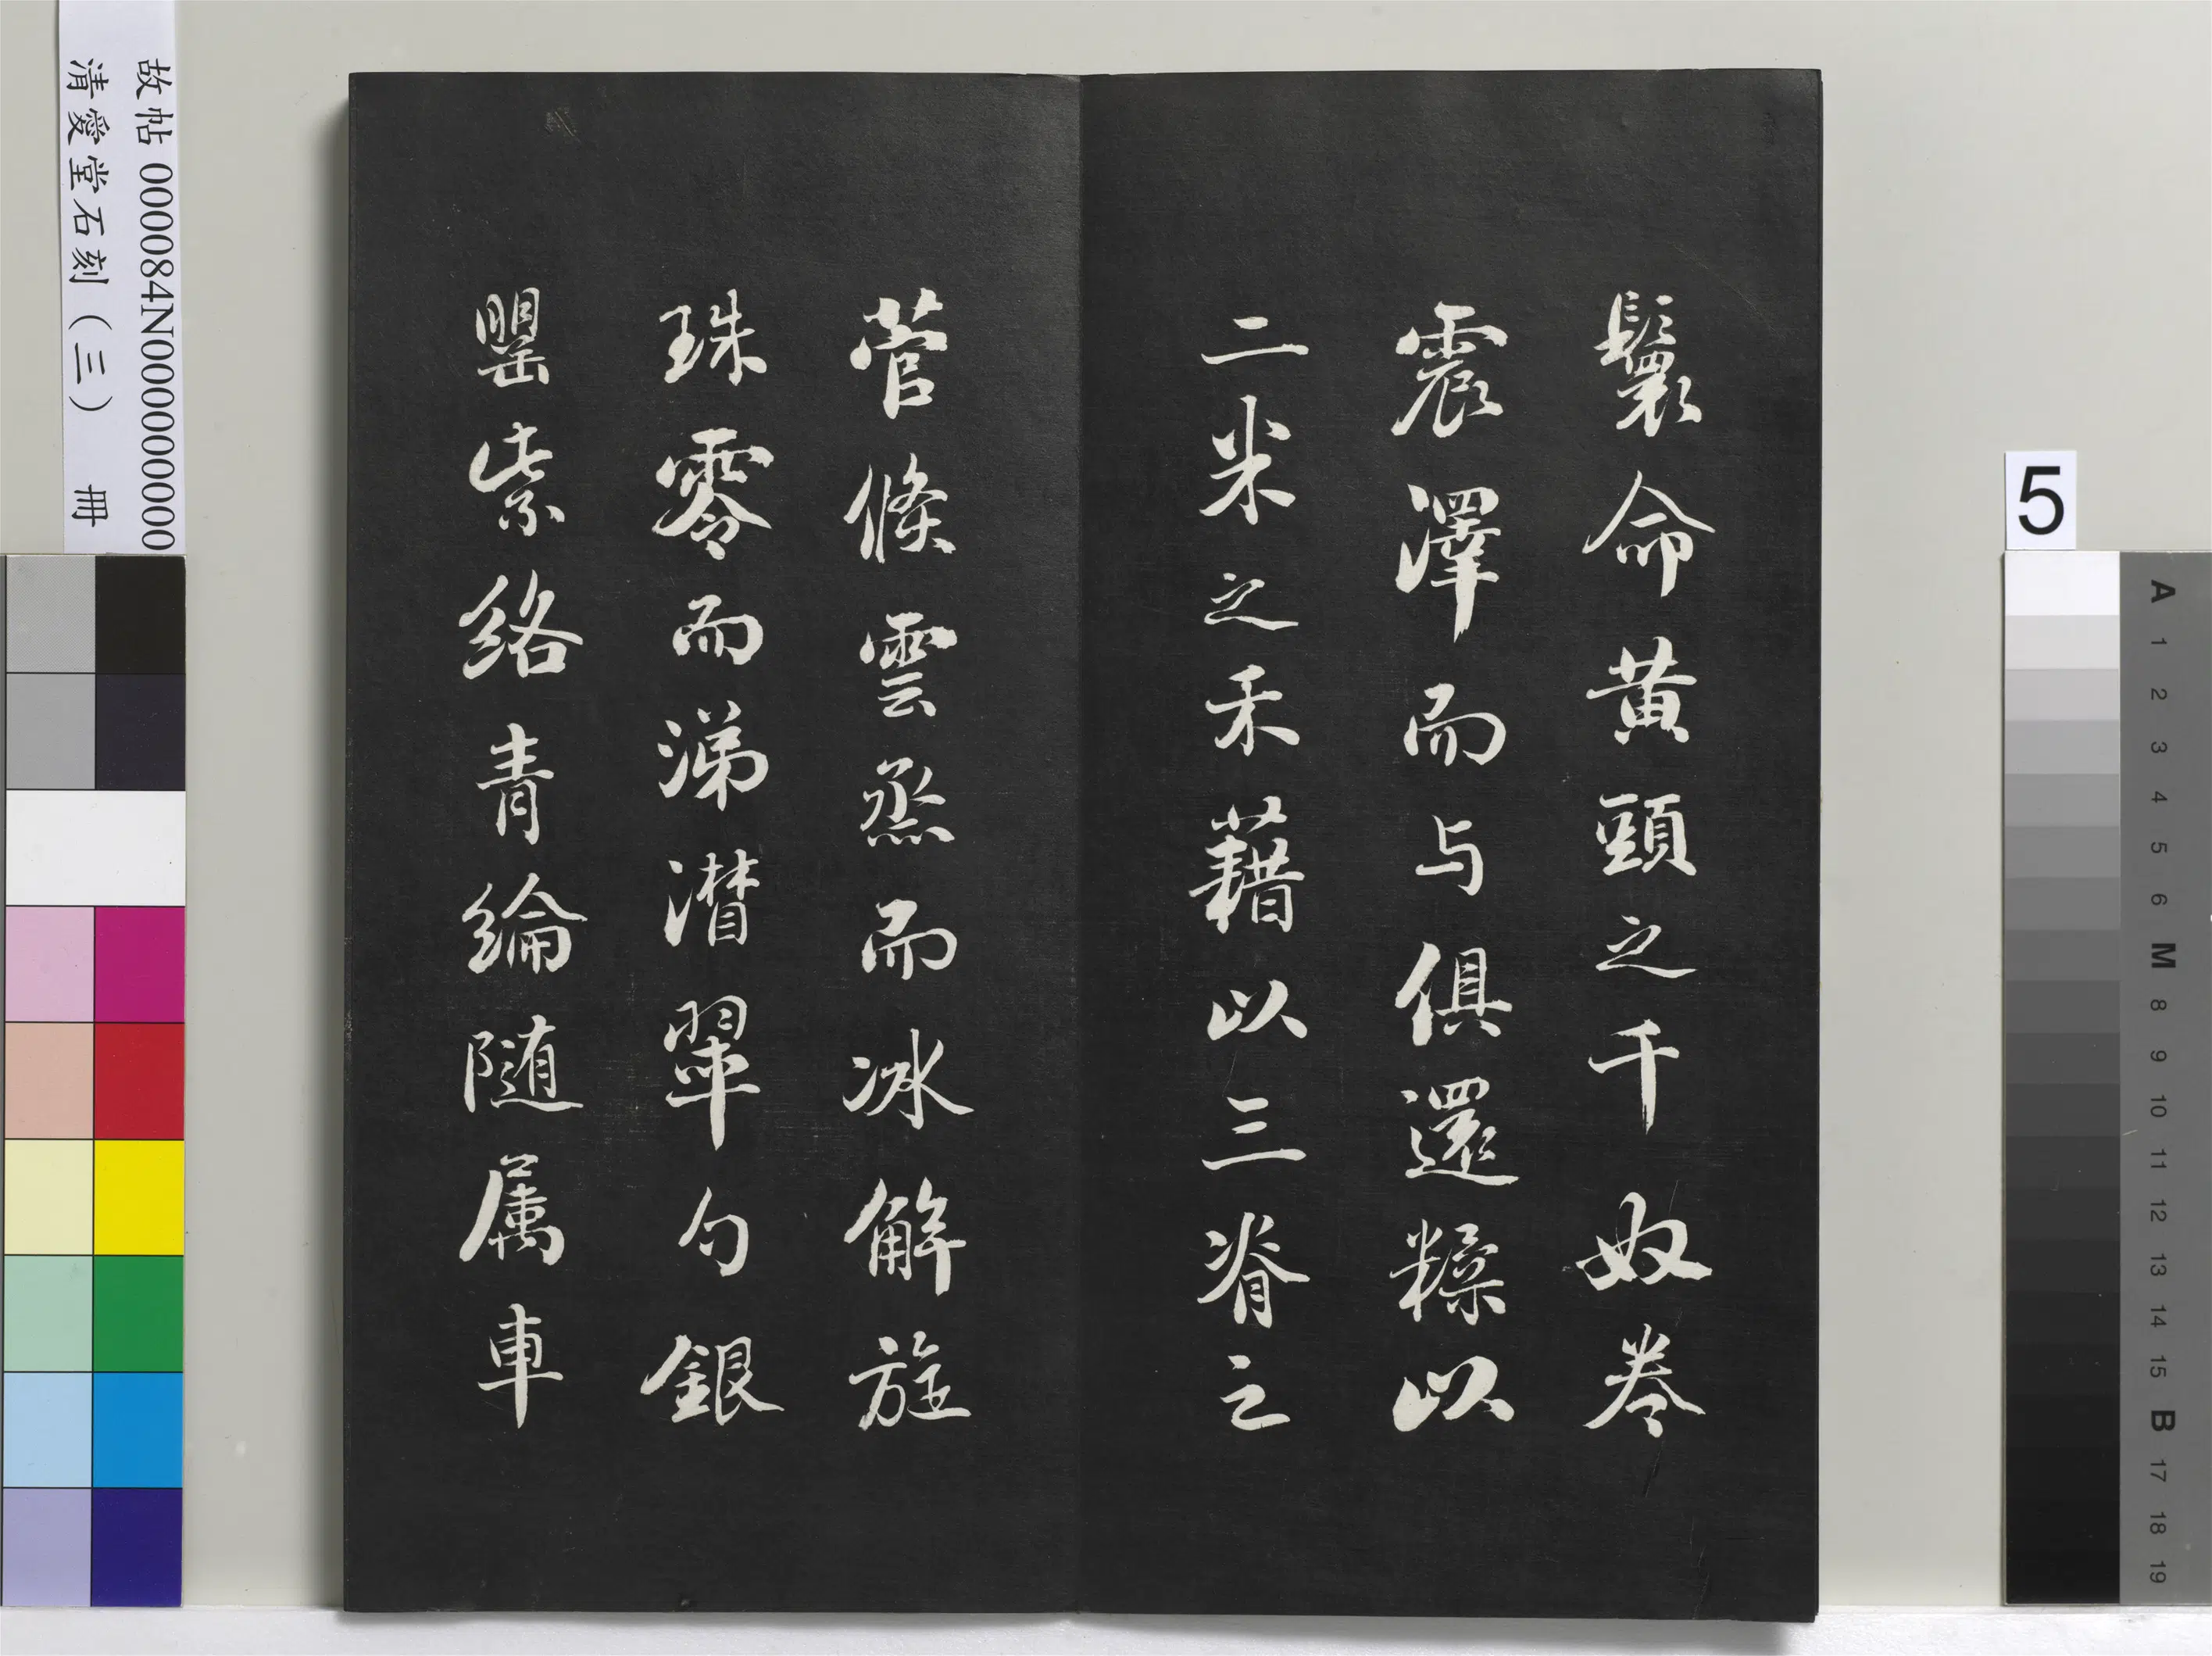 鬟命黄頭之千奴卷
震澤而与俱還糅以
二米之禾藉以三脊之
菅倏雲烝而冰解旋
珠零而涕潸翠勺銀
罌紫絡青綸随属車
故帖 000084N000000000
清愛堂石刻(三) 冊
5
A 1 2 3 4 5 6 M 8 9 10 11 12 13 14 15 B 17 18 19